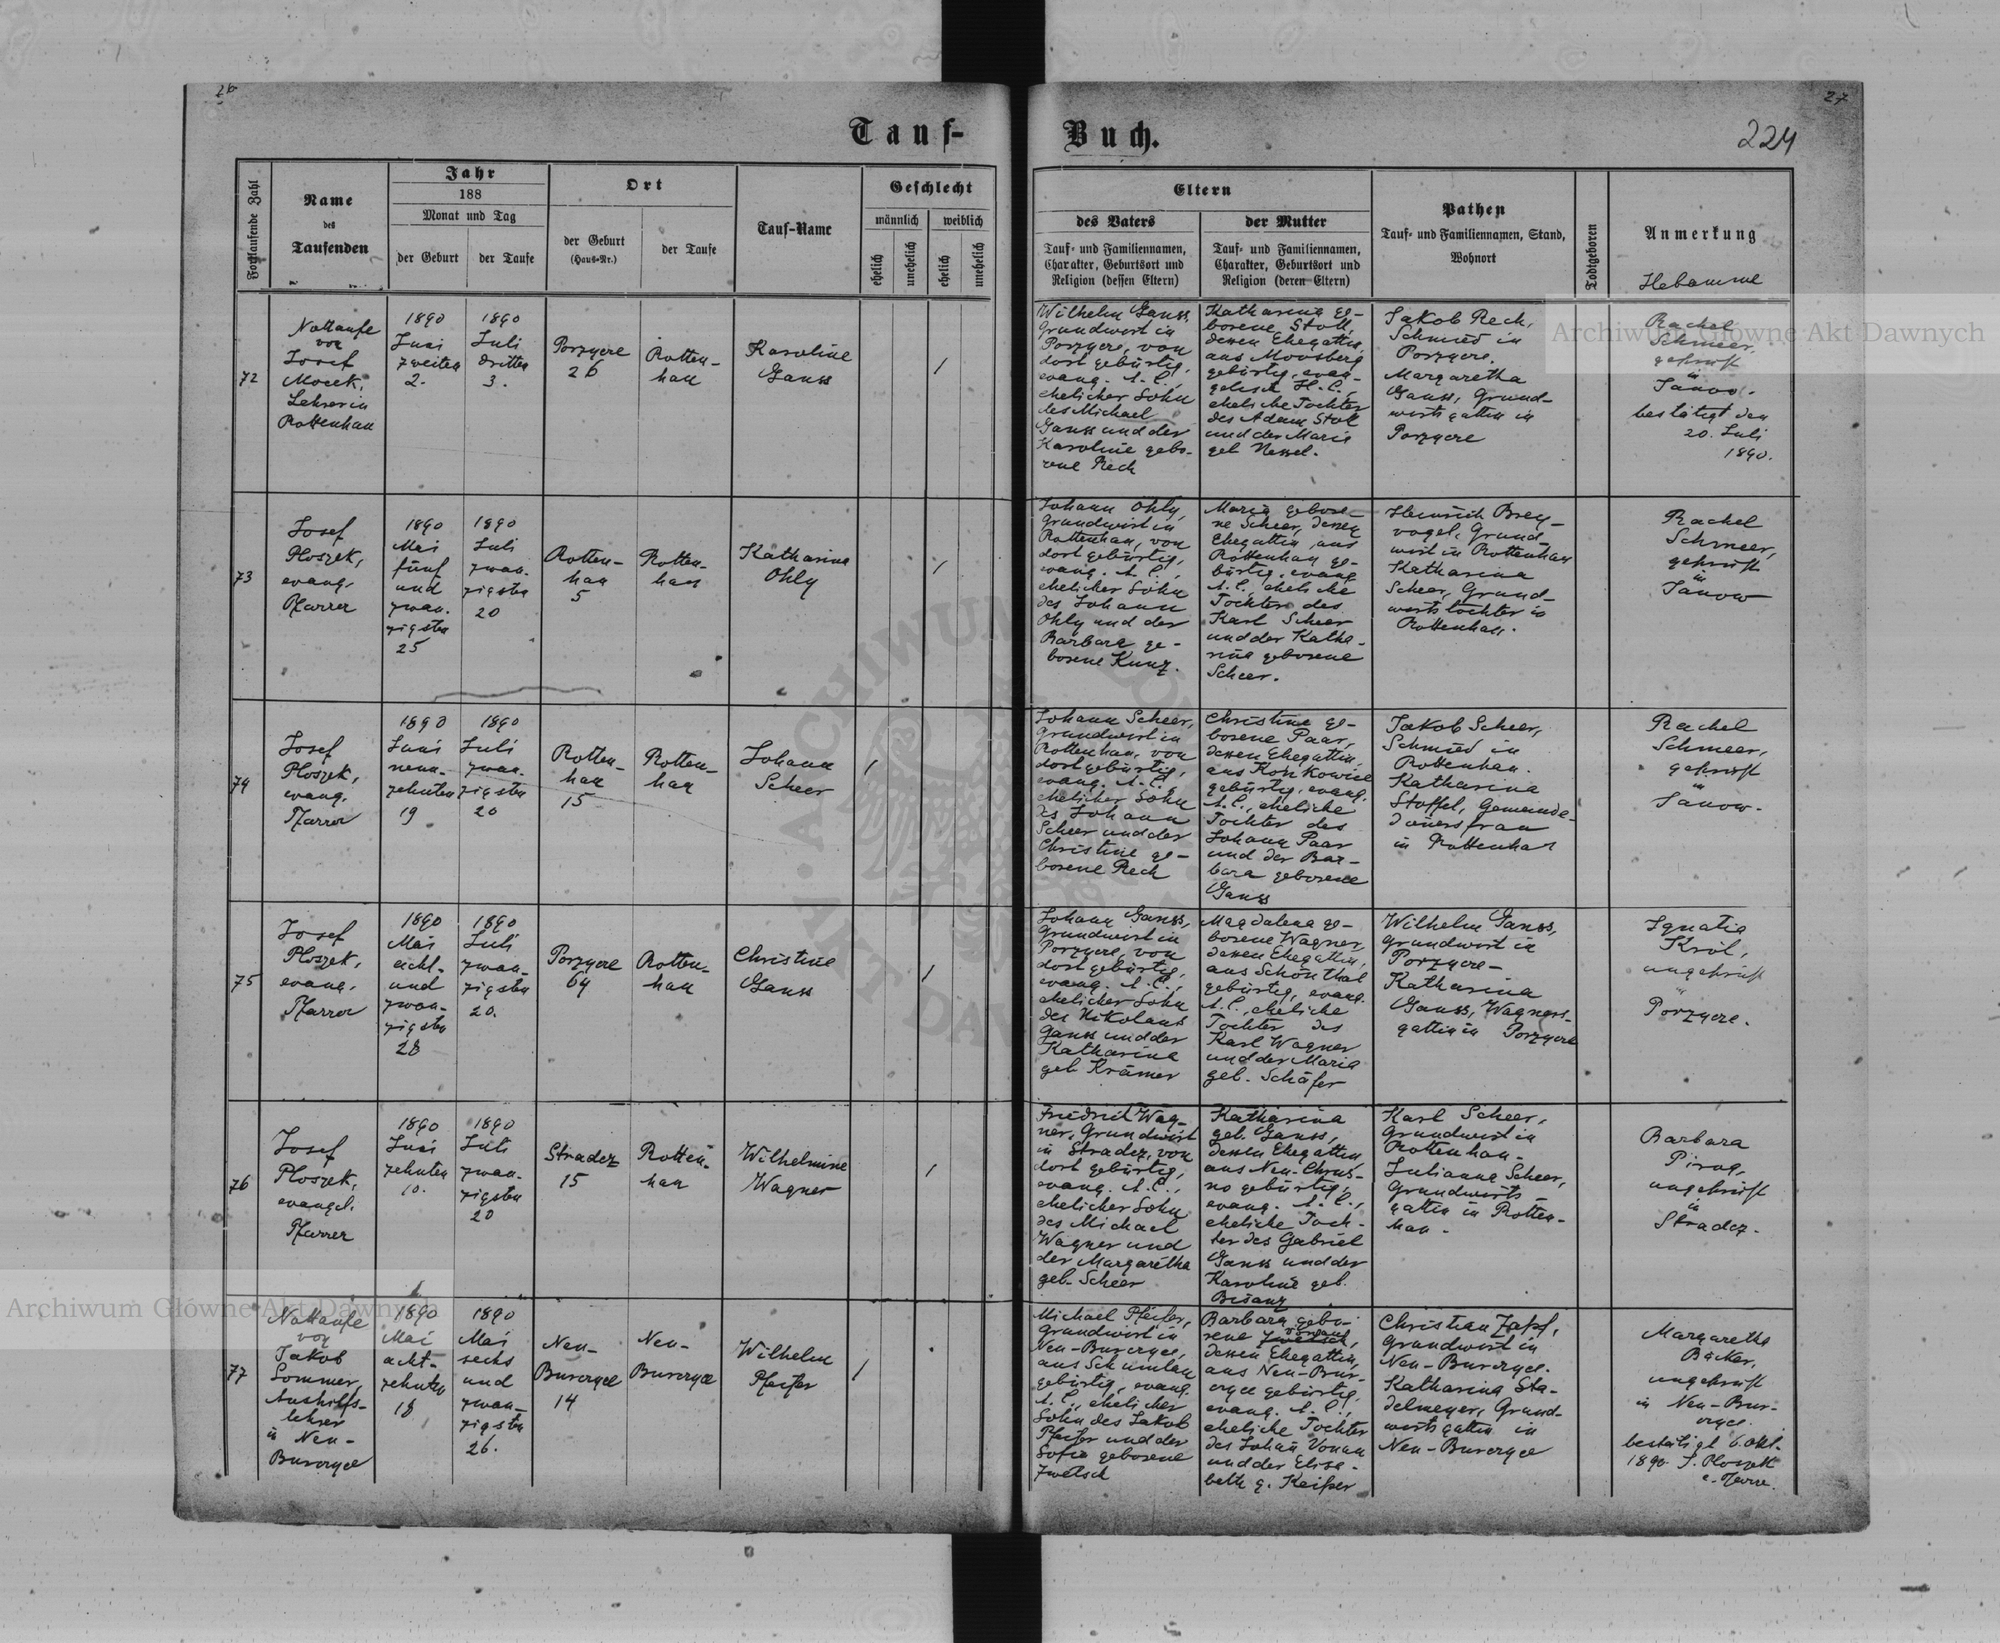 26
27
Tauf-
Buch.
224
Fortlaufende Zahl
Name
des
Taufenden
Jahr
188
Monat und Tag
der Geburt
der Taufe
Ort
der Geburt
(Haus-Nr.)
der Taufe
Tauf-Name
Geschlecht
männlich
weiblich
ehelich
unehelich
ehelich
unehelich
Eltern
des Vaters
Tauf- und Familiennamen,
Charakter, Geburtsort und
Religion (dessen Eltern)
der Mutter
Tauf- und Familiennamen,
Charakter, Geburtsort und
Religion (deren Eltern)
Pathen
Tauf- und Familiennamen, Stand,
Wohnort
Todtgeboren
Anmerkung
Hebamme
72
Nottaufe
von
Josef
Mocek,
Lehrer in
Rottenhan
1890
Juni
zweiten
2.
1890
Juli
dritten
3.
Porzycze
26
Rotten-
han
Karoline
Ganss
/
Wilhelm Ganss,
Grundwirt in
Porzycze, von
dort gebürtig,
evang. A. C.,
ehelicher Sohn
des Michael
Ganss und der
Karoline gebo-
rene Rech
Katharina ge-
borene Stoll,
dessen Ehegattin,
aus Moosberg
gebürtig, evan-
gelisch H. C.,
eheliche Tochter
des Adam Stoll
und der Maria
geb. Nessel.
Jakob Rech,
Schmied in
Porzycze.
Margaretha
Ganss, Grund-
wirtsgattin in
Porzycze
Rachel
Schmeer,
geprüft
in
Janow.
bestätigt den
20. Juli
1890.
73
Josef
Ploszek,
evang.
Pfarrer
1890
Mai
fünf
und
zwan-
zigsten
25
1890
Juli
zwan-
zigsten
20
Rotten-
han
5
Rotten-
han
Katharina
Ohly
/
Johann Ohly,
Grundwirt in
Rottenhan, von
dort gebürtig,
evang. A. C.,
ehelicher Sohn
des Johann
Ohly und der
Barbara ge-
borene Kunz.
Maria gebore-
ne Scheer, dessen
Ehegattin, aus
Rottenhan ge-
bürtig, evang.
A. C., eheliche
Tochter des
Karl Scheer
und der Katha-
rina geborene
Scheer.
Heinrich Brey-
vogel, Grund-
wirt in Rottenhan
Katharina
Scheer, Grund-
wirtstochter in
Rottenhan.
Rachel
Schmeer,
geprüft
in
Janow
74
Josef
Ploszek,
evang.
Pfarrer
1890
Juni
neun-
zehnten
19
1890
Juli
zwan-
zigsten
20
Rotten-
han
15
Rotten-
han
Johann
Scheer
/
Johann Scheer,
Grundwirt in
Rottenhan, von
dort gebürtig,
evang. A. C.,
ehelicher Sohn
des Johann
Scheer und der
Christine ge-
borene Rech
Christine ge-
borene Paar,
dessen Ehegattin,
gebürtig, evang.
A. C., eheliche
Tochter des
Johann Paar
und der Bar-
bara geborene
Ganss
Jakob Scheer,
Schmied in
Rottenhan.
Katharina
Stoffel, Gemeinde-
in Rottenhan
Rachel
Schmeer,
geprüft
in
Janow.
75
Josef
Ploszek,
evang.
Pfarrer
1890
Mai
acht-
und
zwan-
zigsten
28
1890
Juli
zwan-
zigsten
20.
Porzycze
64
Rotten-
han
Christine
Ganss
/
Johann Ganss,
Grundwirt in
Porzycze, von
dort gebürtig,
evang. A. C.,
ehelicher Sohn
des Nikolaus
Ganss und der
Katharina
geb. Krämer
Magdalena ge-
borene Wagner,
dessen Ehegattin,
aus Schönthal
gebürtig, evang.
A. C., eheliche
Tochter des
Karl Wagner
und der Maria
geb. Schäfer
Wilhelm Ganss,
Grundwirt in
Porzycze-
Katharina
Ganss, Wagners-
gattin in Porzycze
Ignatia
Król,
ungeprüft
in
Porzycze.
76
Josef
Ploszek,
evangel.
Pfarrer
1890
Juni
zehnten
10.
1890
Juli
zwan-
zigsten
20
Stradez
15
Rotten-
han
Wilhelmine
Wagner
/
Friedrich Wag-
ner, Grundwirt
in Stradez, von
dort gebürtig,
evang. A. C.,
ehelicher Sohn
des Michael
Wagner und
der Margaretha
geb. Scheer
Katharina
geb. Ganss,
dessen Ehegattin
aus Neu-Chrus-
no gebürtig,
evang. A. C.,
eheliche Toch-
ter des Gabriel
Ganss und der
Karoline geb.
Bisanz
Karl Scheer,
Grundwirt in
Rottenhan-
Julianna Scheer,
Grundwirts-
gattin in Rotten-
han.
Barbara
Pirog,
ungeprüft
in
Stradez.
77
Nottaufe
von
Jakob
Sommer,
Aushilfs-
lehrer
in Neu-
Burczyce
1890
Mai
acht-
zehnten
18
1890
Mai
sechs
und
zwan-
zigsten
26.
Neu-
Burczyce
14
Neu-
Burczyce
Wilhelm
Pfeifer
/
Michael Pfeifer,
Grundwirt in
Neu-Burczyce,
aus Schumlau
gebürtig, evang.
A. C., ehelicher
Sohn des Jakob
Pfeifer und der
Sofia geborene
Zwetsch
Barbara gebo-
Vonau
rene Zwetsch,
dessen Ehegattin,
aus Neu-Bur-
czyce gebürtig,
evang. A. C.,
eheliche Tochter
des Johann Vonau
und der Elisa-
beth g. Keiper
Christian Zapf,
Grundwirt in
Neu-Burczyce.
Katharina Sta-
delmeyer, Grund-
wirtsgattin in
Neu-Burczyce
Margaretha
Bäcker,
ungeprüft
in Neu-Bur-
czyce.
bestätigt 6. Okt.
1890 J. Ploszek
e. Pfarrer.
Archiwum Główne Akt Dawnych
Archiwum Główne Akt Dawnych